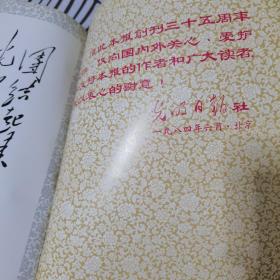 值此本报创刊三十五周年
仅向国内外关心、爱护
支持本报的作者和广大读者
致以衷心的谢意！
光明日报社
一九八四年六月·北京
团结起来